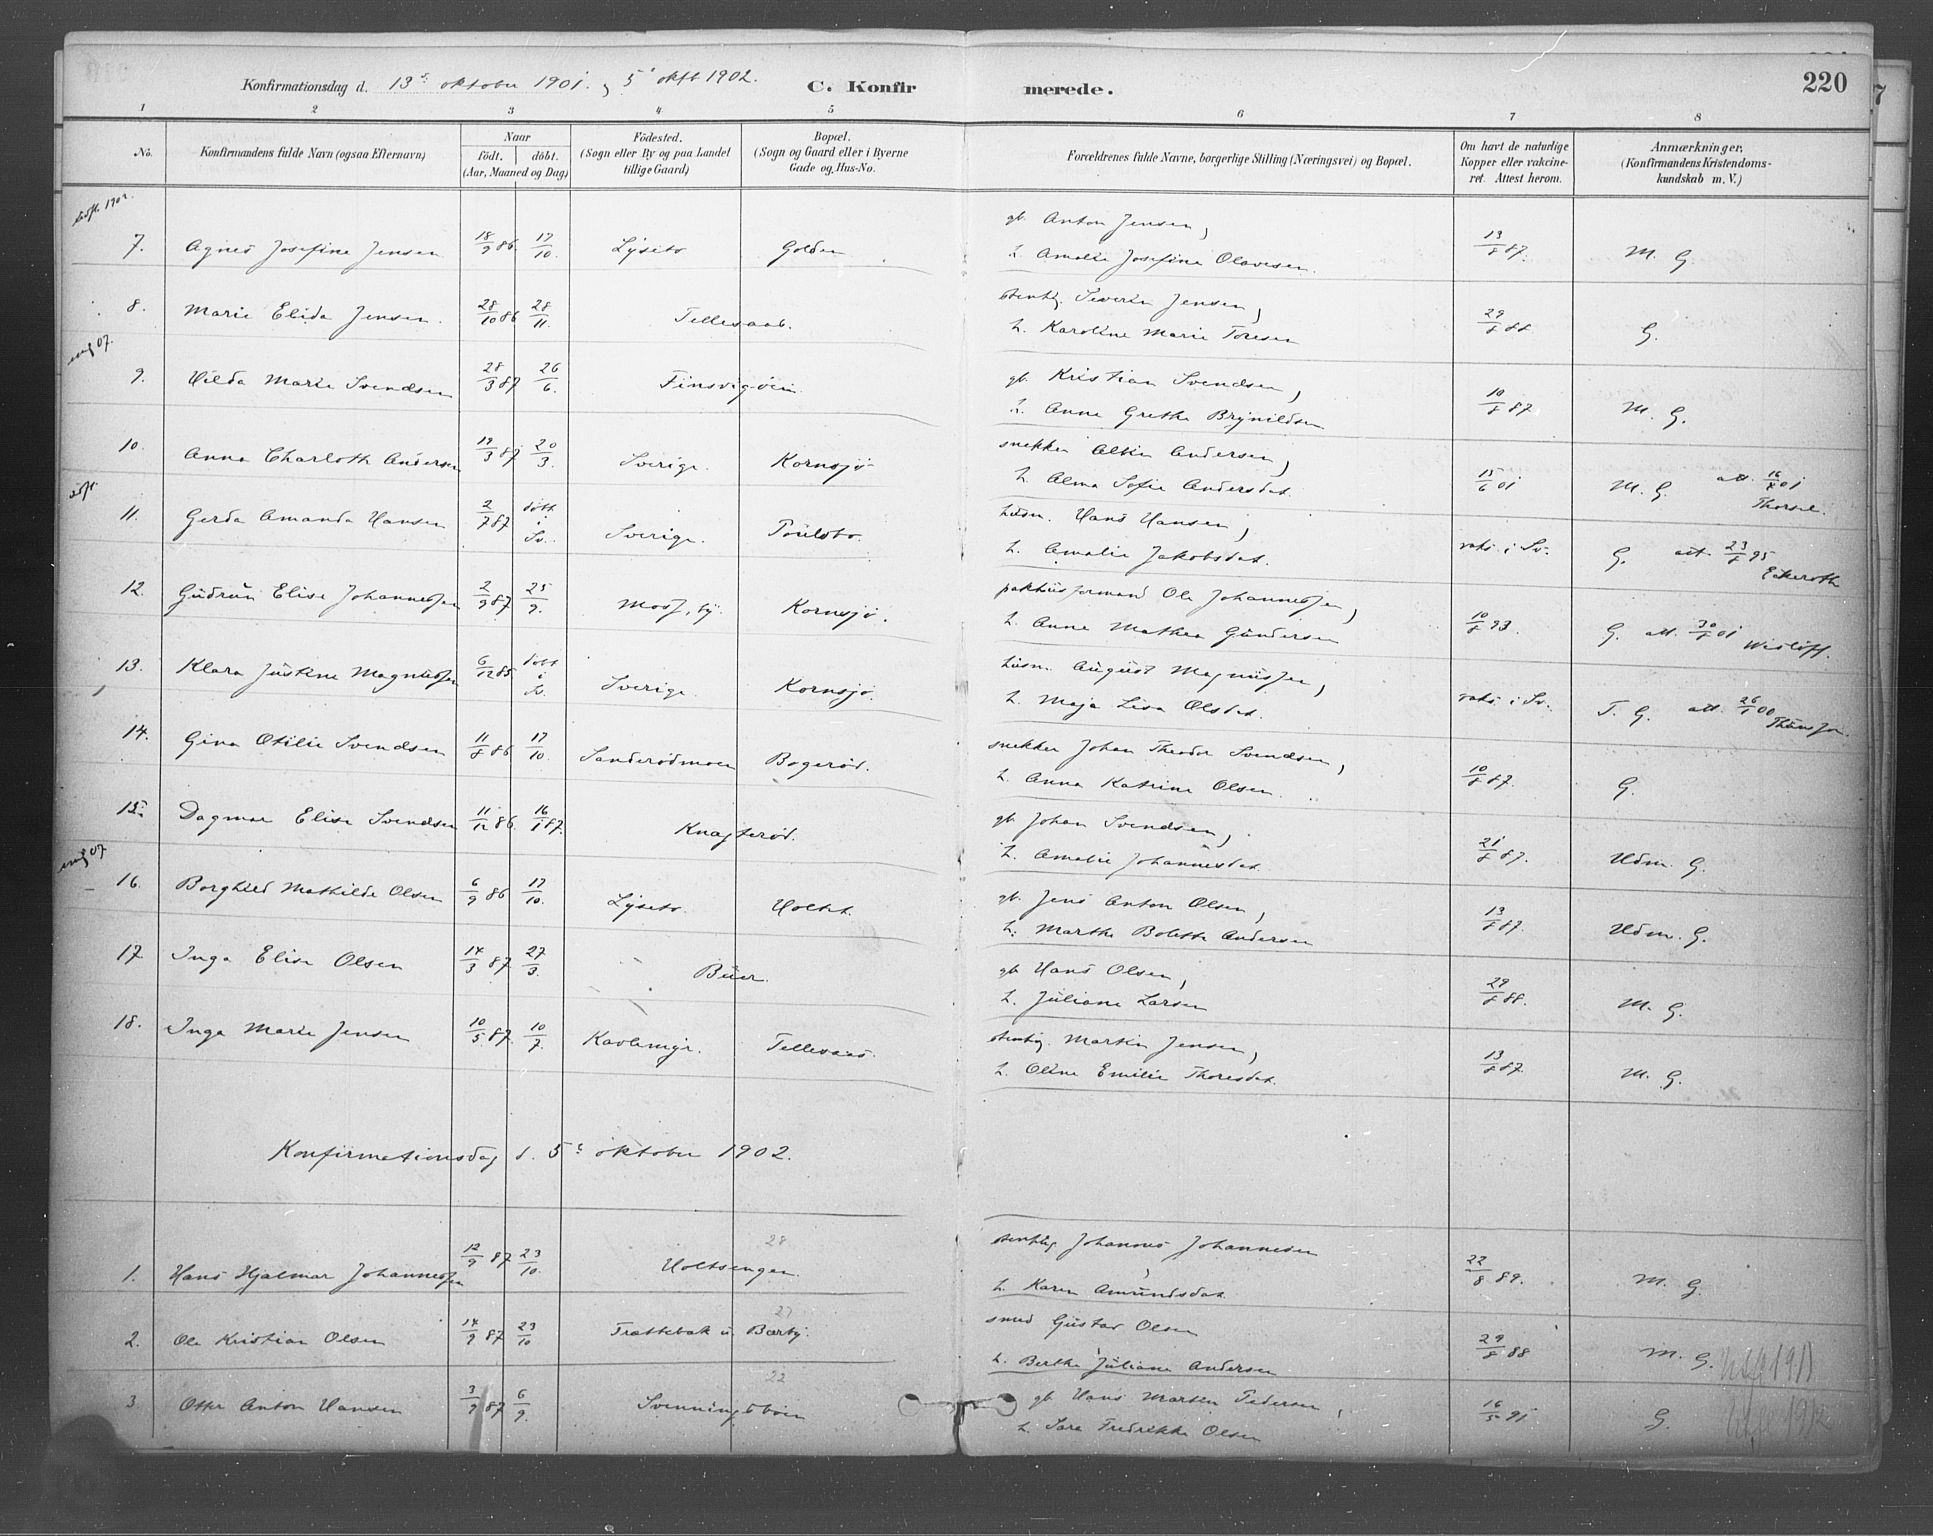 Konfirmationsdag d. 13de oktober 1901. og 5te oktb 1902.
C. Konfirmerede.
220
1 2 3 4 5 6 7 8
No. Konfirmandens fulde Navn (ogsaa Efternavn) Naar født. døbt. (Aar, Maaned og Dag) Fødested. (Sogn eller By og paa Landet tillige Gaard) Bopæl. (Sogn og Gaard eller i Byerne Gade og Hus-No. Forældrenes fulde Navne, borgerlige Stilling (Næringsvei) og Bopæl. Om havt de naturlige Kopper eller vakcineret. Attest herom. Anmærkninger. (Konfirmandens Kristendomskundskab m. V.)
7. Agnes Josefine Jensen 18/9 86 17/10. Lyseto Golden gb. Anton Jensen, h. Amalie Josefine Olavesen. 13/8 87. M. G.
8. Marie Elida Jensen. 28/10 86 28/11. Tellesaab. Severin Jensen, h. Karoline Marie Toresen 29/8 88 G.
9. Hilda Marie Svendsen 28/3 87 26/6. Finsvigøien gb. Kristian Svendsen, h. Anne Grethe Brynildsen 10/8 87. M. G.
10. Anna Charloth Andersen 19/3 87 20/3. Sverige. Kornsjø snekker Alkin Andersen, h. Alma Sofie Andersdat. 15/6 01 M. G. att. 16/8 01 Thorsel.
11. Gerda Amanda Hansen 2/7 87 døbt i Sv. Sverige. husm. Hans Hansen, h. Amalie Jakobsdat. vaks. i Sv. G. att. 23/8 95 Eckeroth
12. Gudrun Elise Johannessen 2/9 87 25/9. Moss, by. Kornsjø. pakhusformand Ole Johannessen, h. Anne Mathea Gundersen 10/8 93. G. att. 30/8 01 Wisløff.
13. Klara Justine Magnussen 6/12 85. døbt i Sv. Sverige. Kornsjø. husm. August Magnussen, h. Maja Lisa Olsdat. vaks. i Sv. T. G. att. 26/1 00
14. Gina Otilie Svendsen 11/8 86 17/10. Sanderødmoen Bogerød. snekker Johan Theodor Svendsen, h. Anna Katrine Olsen. 10/8 87. G.
15. Dagmar Elise Svendsen 11/12 86. 16/1 87. Knagterød. gb. Johan Svendsen, h. Amalie Johannesdat. 21/8 87. Udm. G.
16. Borghild Mathilde Olsen 6/9 86 17/10. Lyseto. Holtet. gb. Jens Anton Olsen, h. Marthe Bolette Andersen 13/8 87. Udm. G.
17 Inga Elise Olsen 14/3 87 27/3. Buer. gb Hans Olsen, h. Juliane Larsen 29/8 88. M. G.
18. Inga Marie Jensen 10/5 87. 10/7. Kavlemyr. Tellesaas. Martin Jensen, h. Oline Emilie Thoresdat. 13/8 87. M. G.
Konfirmationsdag d. 5te oktober 1902.
1. Hans Hjalmar Johannessen 12/9 87 23/10. 28 Holtsengen. Johannes Johannesen h. Karen Amundsdat. 22/8 89. M. G.
2. Ole Kristian Olsen 14/9 87 23/10 27 Trættebak u. Bærby. smed Gustav Olsen h. Berthe Juliane Andersen 29/8 88 M. G.
3. Otter Anton Hansen 3/9 87 6/9. 22 Svenningsbøen gb Hans Martin Pedersen, h. Sara Fredrikke Olsen 16/5 91 G.